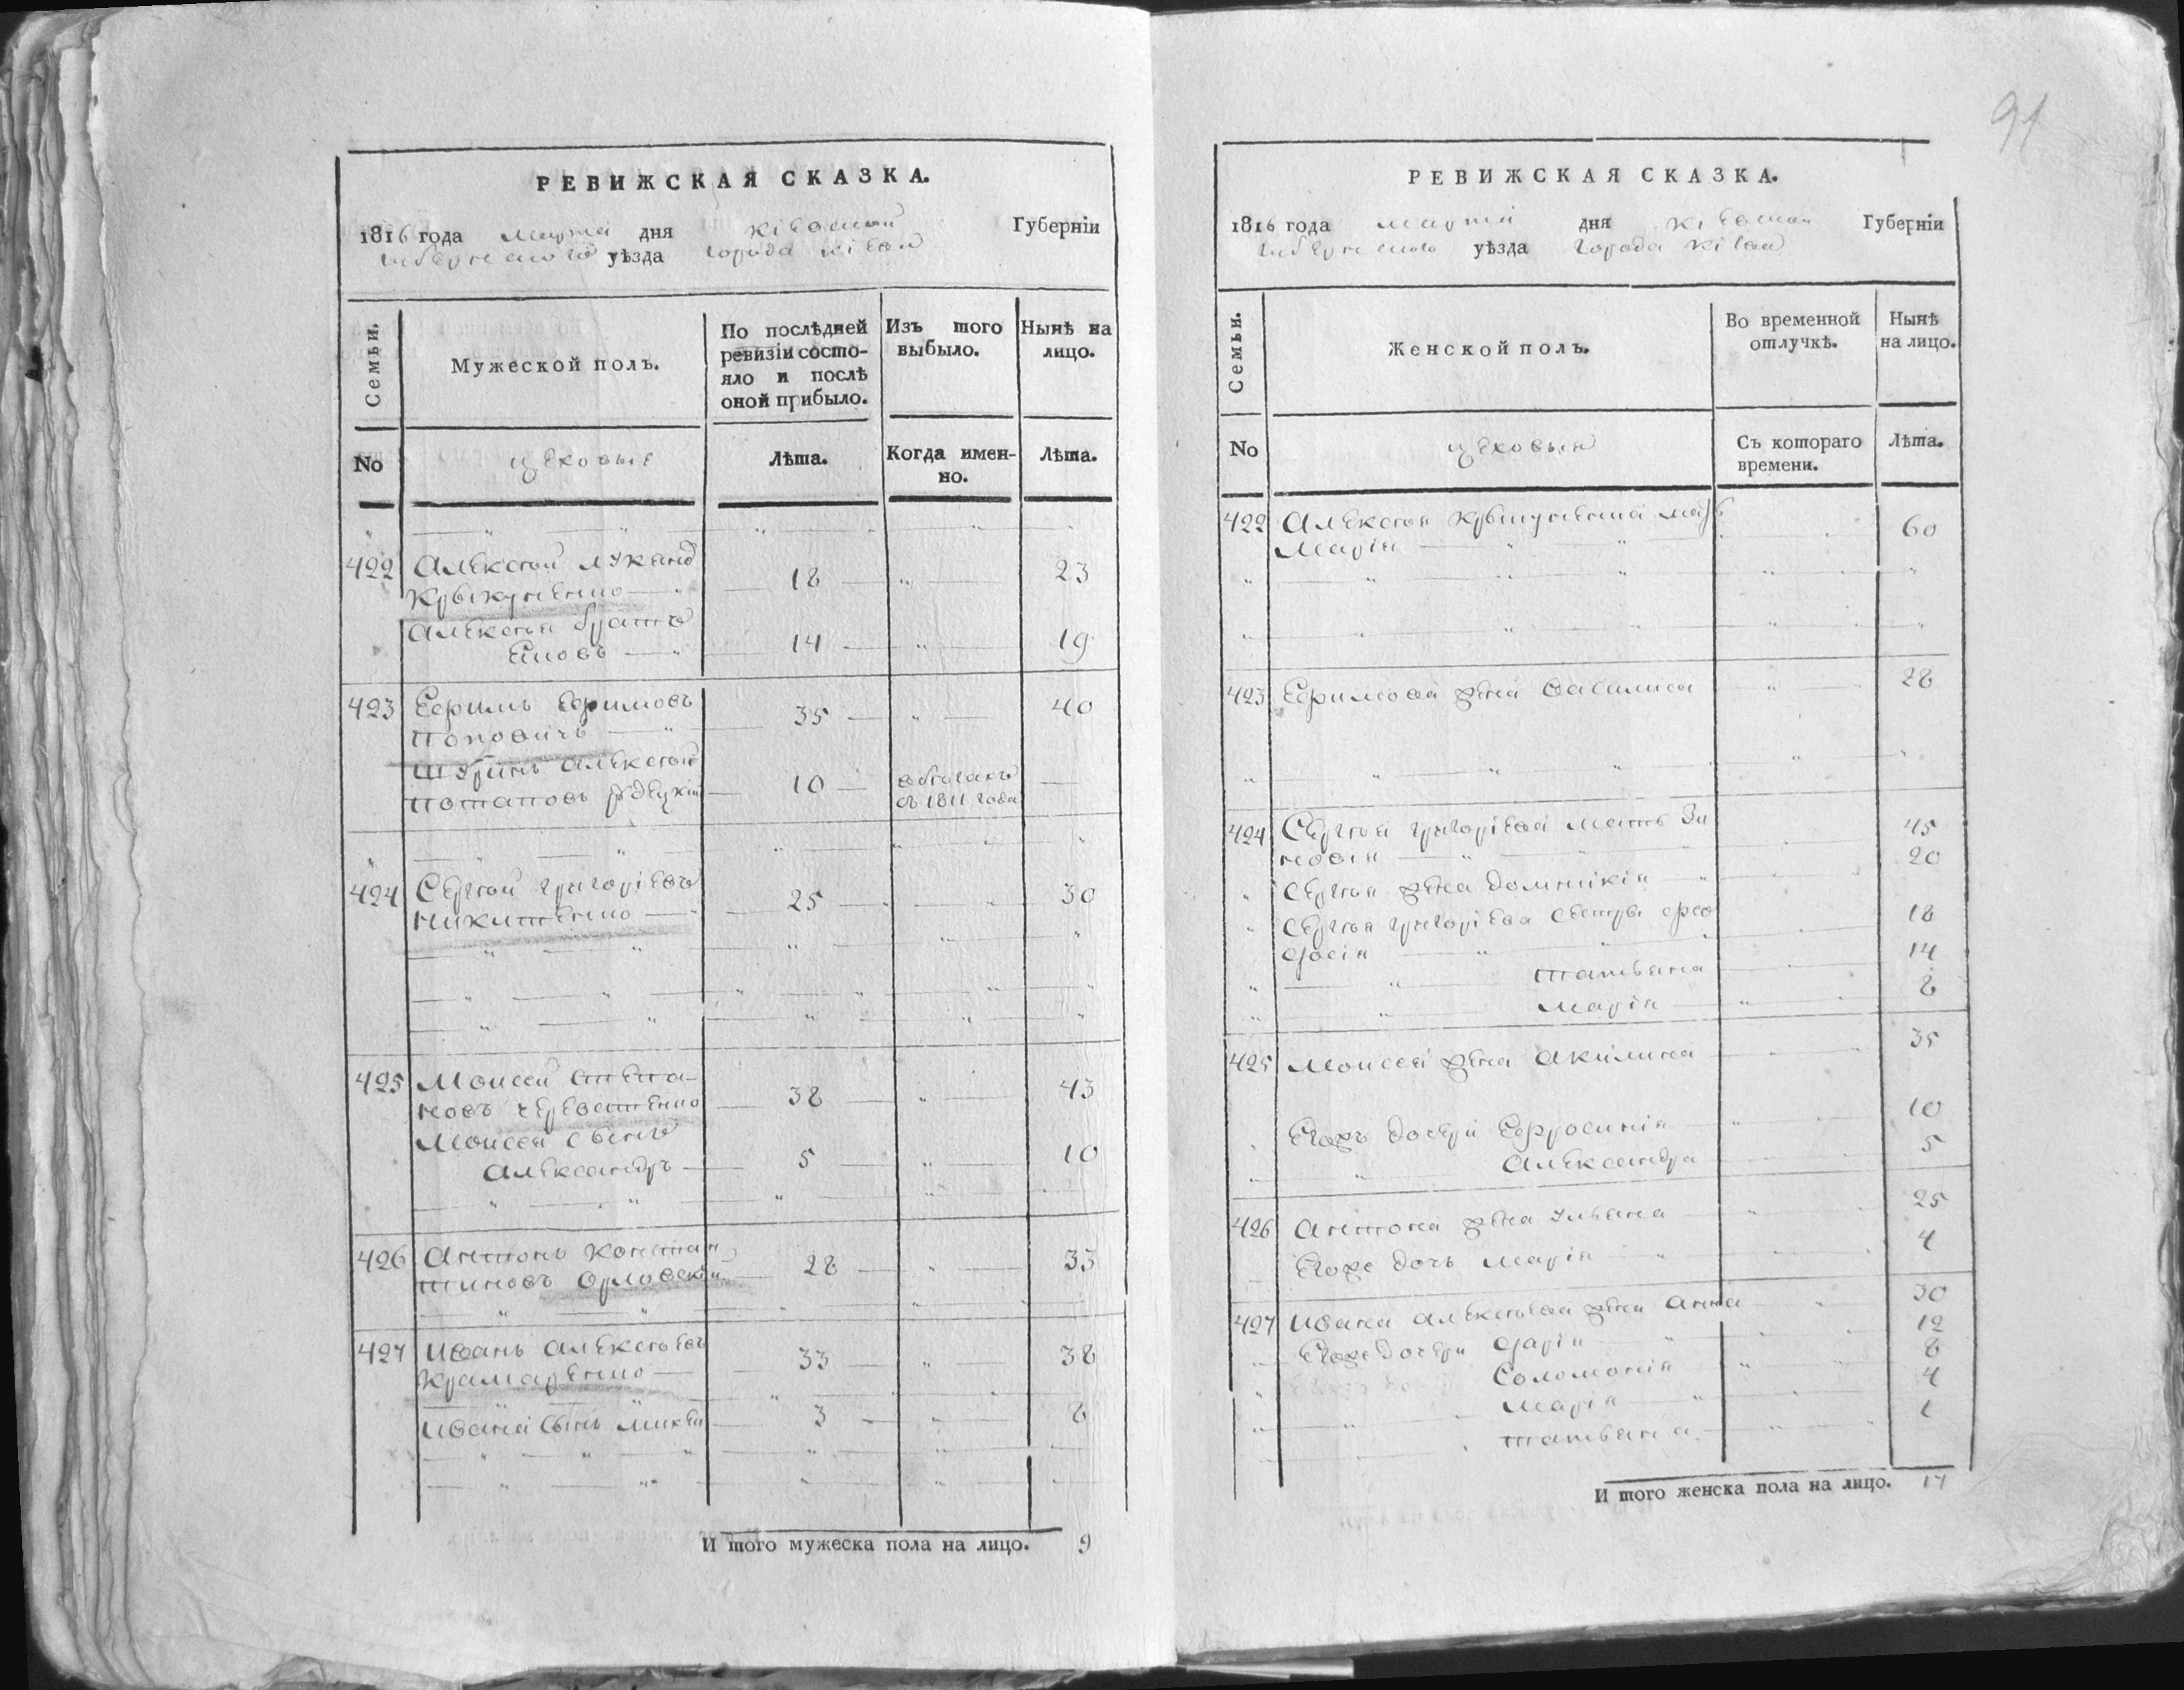 91
РЕВИЖСКАЯ СКАЗКА.
1816 года марта дня Кіевской Губерніи
губернского уѣзда города Кіева
Семьи. Мужеской полъ. По послѣдней ревизіи состо-яло и послѣ оной прибыло. Изъ того выбыло. Нынѣ на лицо.
No цеховые Лѣта. Когда имен-но. Лѣта.
422 Алексѣй Лукянъ 18 23
Крыкуненко
Алексѣя братъ 14 19
Еиовъ
423 Ефимъ Ефимовъ 35 40
Поповичь
Шуринъ Алексѣй 10 в бѣгахъ
Потаповъ съ 1811 года
424 Сергѣй Григоріевъ 25 30
Никитенко
425 Моисей Степа- 38 43
новъ
Моисея сынъ
Александръ 5 10
426 Антонъ Констан 28 33
тиновъ Орловскій
427 Иванъ Алексѣевъ 33 38
Крамаренко
Ивана сынъ Михей 3 8
И того мужеска пола на лицо. 9
РЕВИЖСКАЯ СКАЗКА.
1816 года марта дня Кіевской Губерніи
губернского уѣзда города Кіева
Семьи. Женской полъ. Во временной отлучкѣ. Нынѣ на лицо.
No цеховыя Съ котораго времени. Лѣта.
422 Алексѣя Крыкуненка мать 60
Марія
423 Ефимова жена Василиса 28
424 Сергѣя Григоріева мать Зи 45
новія
Сергѣя жена Домникія 20
Сергѣя Григоріева сестры Фео 18
фосія
татьяна 14
Марія 8
425 Моисея жена Акилина 35
Егожъ дочери Ефросинія 10
Александра 5
426 Антона жена Ульяна 25
Егоже дочь Марія 4
427 Ивана Алексѣева жена Анна 30
Егоже дочери Дарія 12
Соломонія 8
Марія 4
татьяна 1
И того женска пола на лицо. 17